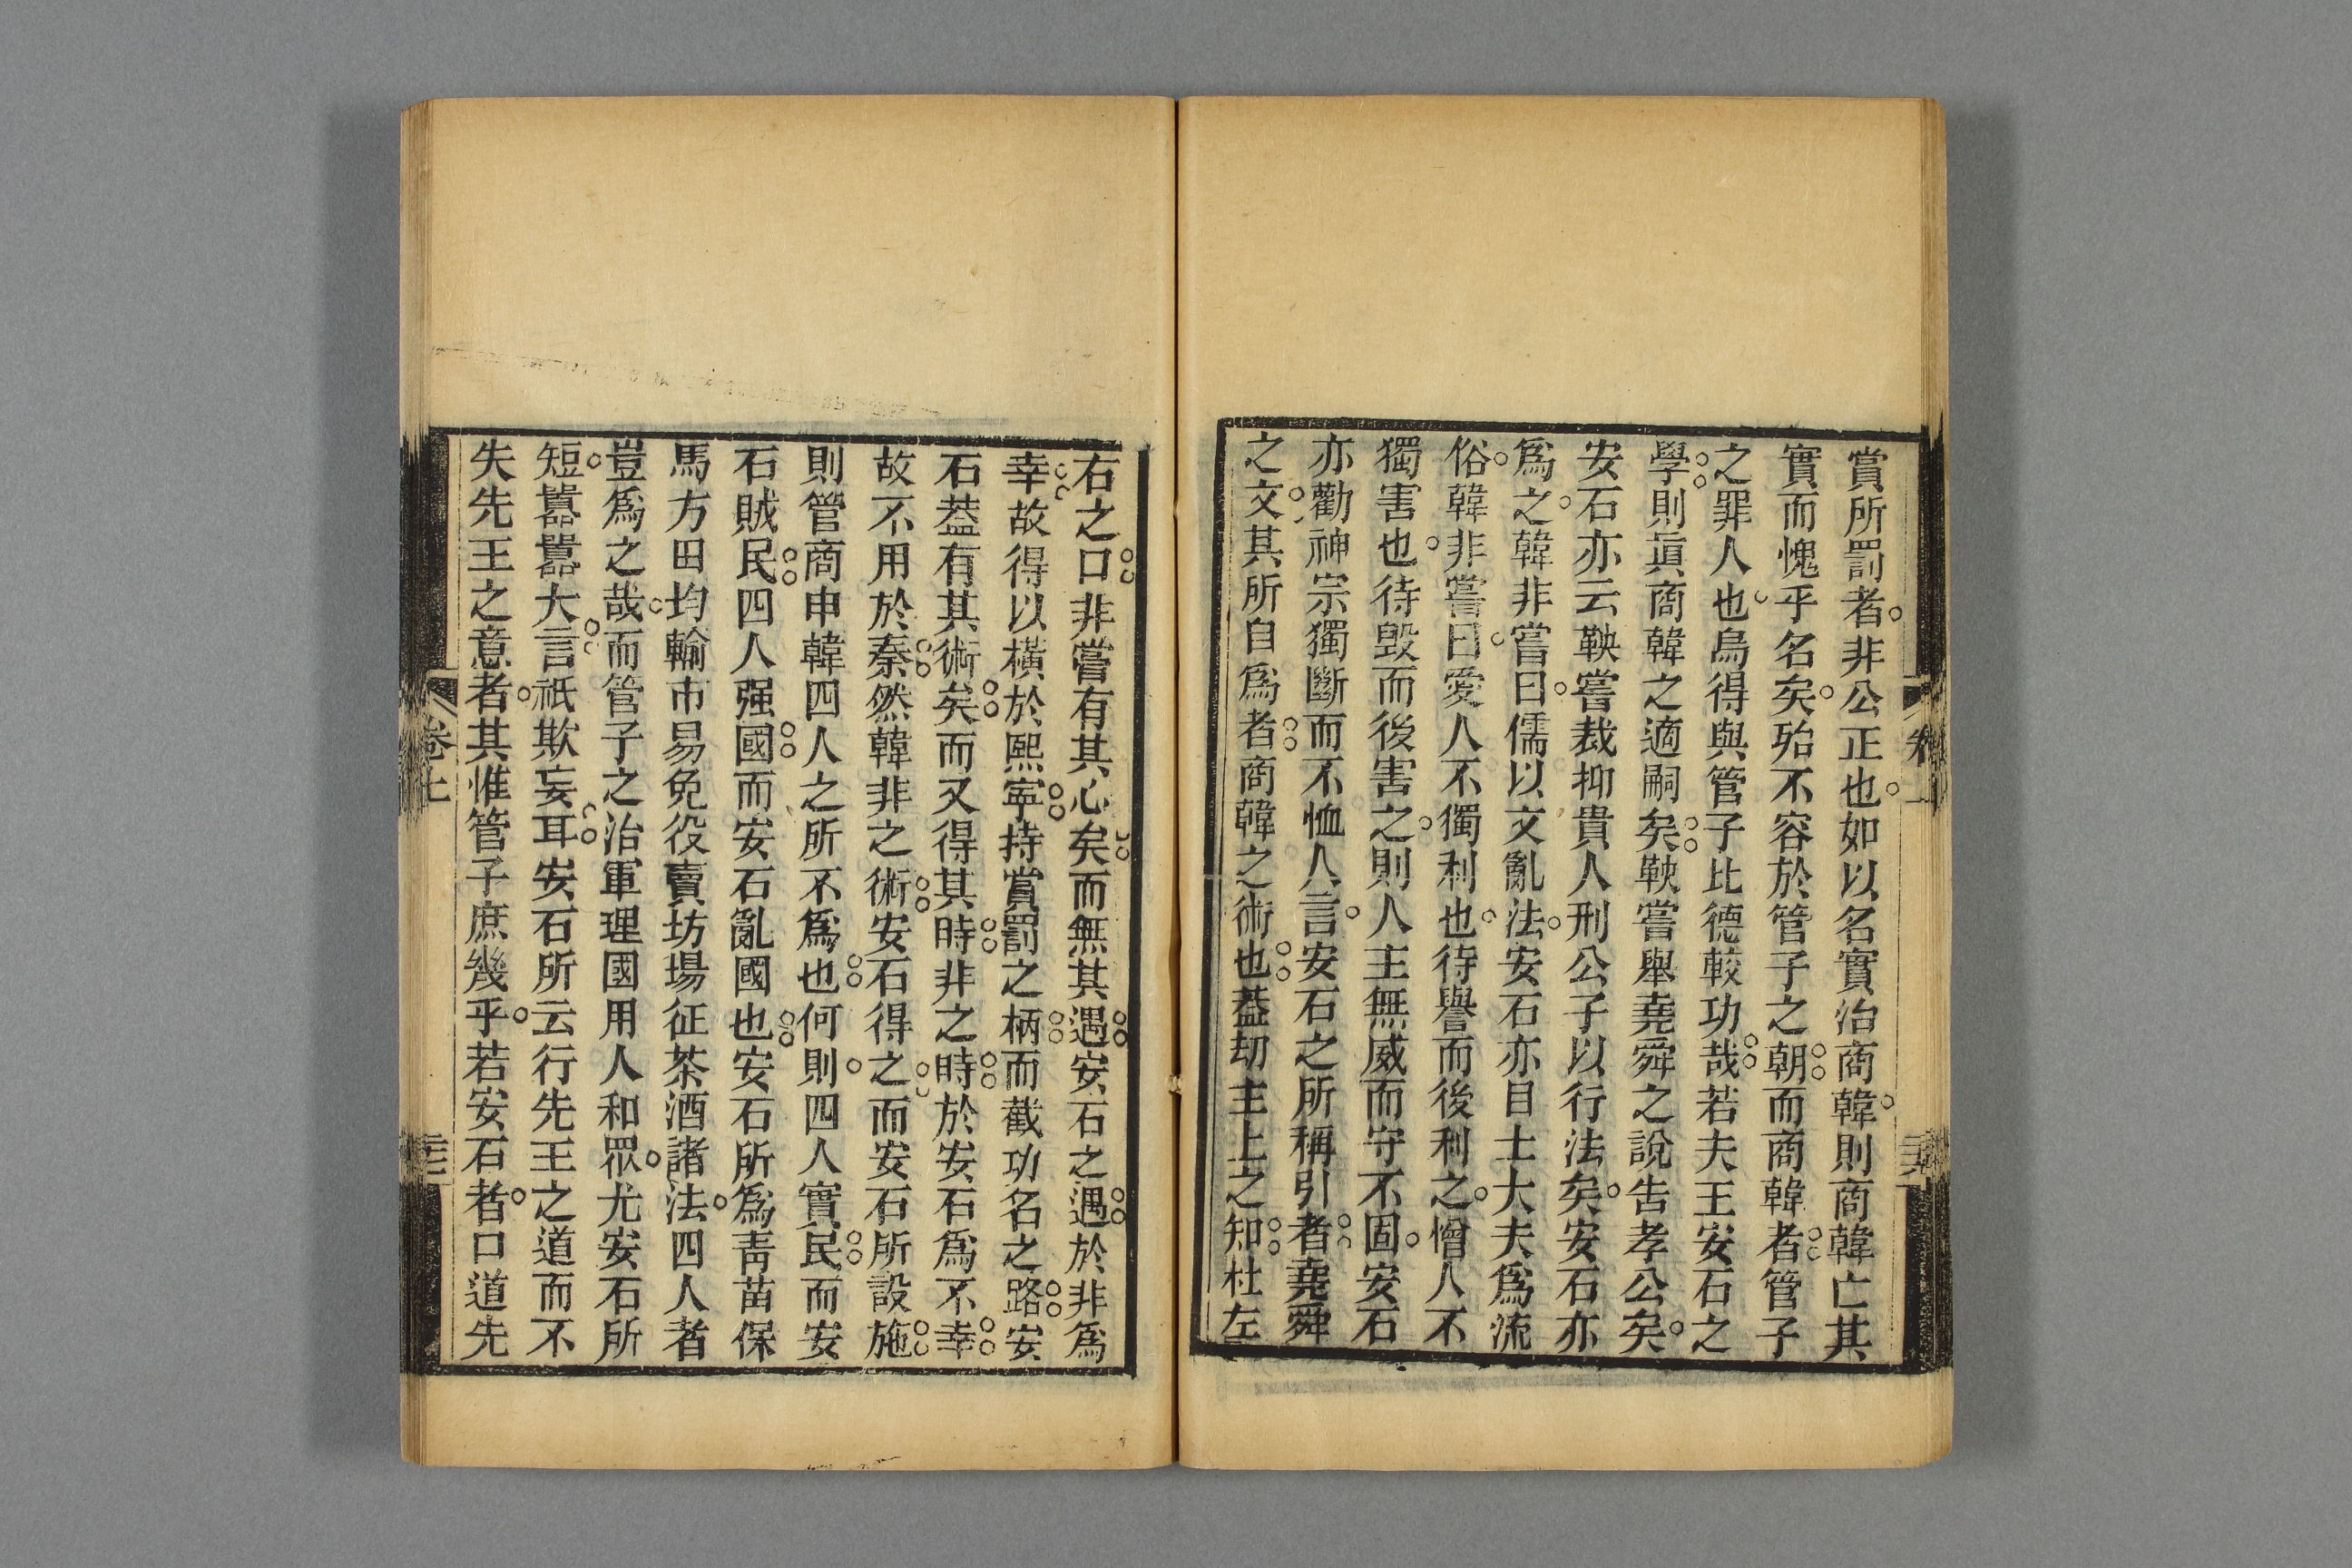 賞所罰者非公正也如以名實治商韓則商韓亡其
實而愧乎名矣殆不容於管子之朝而商韓者管子
之罪人也烏得與管子比德較功哉若夫王安石之
學則眞商韓之適嗣矣鞅嘗舉堯舜之說告孝公矣
安石亦云鞅嘗裁抑貴人刑公子以行法矣安石亦
爲之韓非嘗曰儒以文亂法安石亦目士大夫爲流
俗韓非嘗曰愛人不獨利也待譽而後利之憎人不
獨害也待毀而後害之則人主無威而守不固安石
亦勸神宗獨斷而不恤人言安石之所稱引者堯舜
之文其所自爲者商韓之術也葢劫主上之知杜左
右之口非嘗有其心矣而無其遇安石之遇於非爲
幸故得以橫於熙寧持賞罰之柄而截功名之路安
石葢有其術矣而又得其時非之時於安石爲不幸
故不用於秦然韓非之術安石得之而安石所設施
則管商申韓四人之所不爲也何則四人實民而安
石賊民四人强國而安石亂國也安石所爲靑苗保
馬方田均輸市易免役賣坊場征茶酒諸法四人者
豈爲之哉而管子之治軍理國用人和眾尤安石所
短囂囂大言祇欺妄耳安石所云行先王之道而不
失先王之意者其惟管子庶幾乎若安石者口道先
卷上